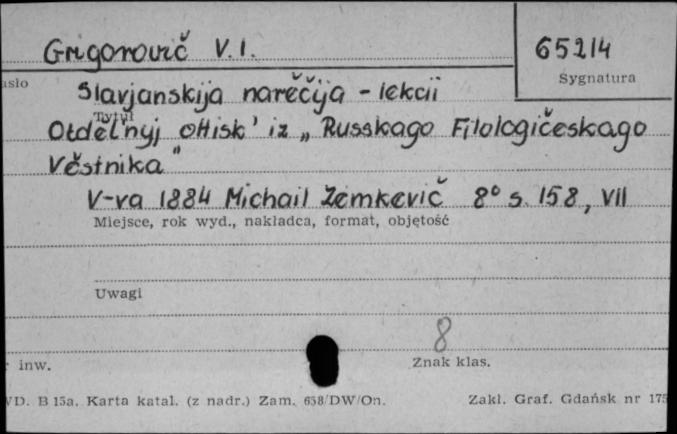 Grigorovič V.I.
65214
Sygnatura
asło
Slavjanskija narěčija - lekcii
Tytuł
Otdel'nyj ottisk' iz „Russkago Filologičeskago
Věstnika"
V-va 1884 Michail Zemkevič 8° s. 158, VII
Miejsce, rok wyd., nakładca, format, objętość
Uwagi
8
r inw.
Znak klas.
VD. B 15a. Karta katal. (z nadr.) Zam. 658/DW/On.
Zakl. Graf. Gdańsk nr 175